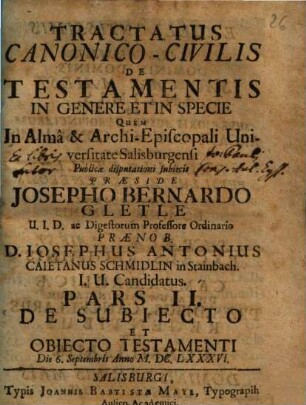 26
TRACTATUS
CANONICO-CIVILIS
DE
TESTAMENTIS
IN GENERE ET IN SPECIE
QUEM
In Almâ & Archi-Episcopali Uni-
versitate Salisburgensi
Publicæ disputationi subiecit
PRÆSIDE
JOSEPHO BERNARDO
GLETLE
U. I. D. ac Digestorum Professore Ordinario
PRÆNOB.
D. IOSEPHUS ANTONIUS
CAIETANUS SCHMIDLIN in Stainbach.
I. U. Candidatus.
PARS II.
DE SUBIECTO
ET
OBIECTO TESTAMENTI
Die 6. Septembris Anno M. DC. LXXXVI.
SALISBURGI,
Typis JOANNIS BAPTISTÆ MAYR, Typographi
Aulico Academici.